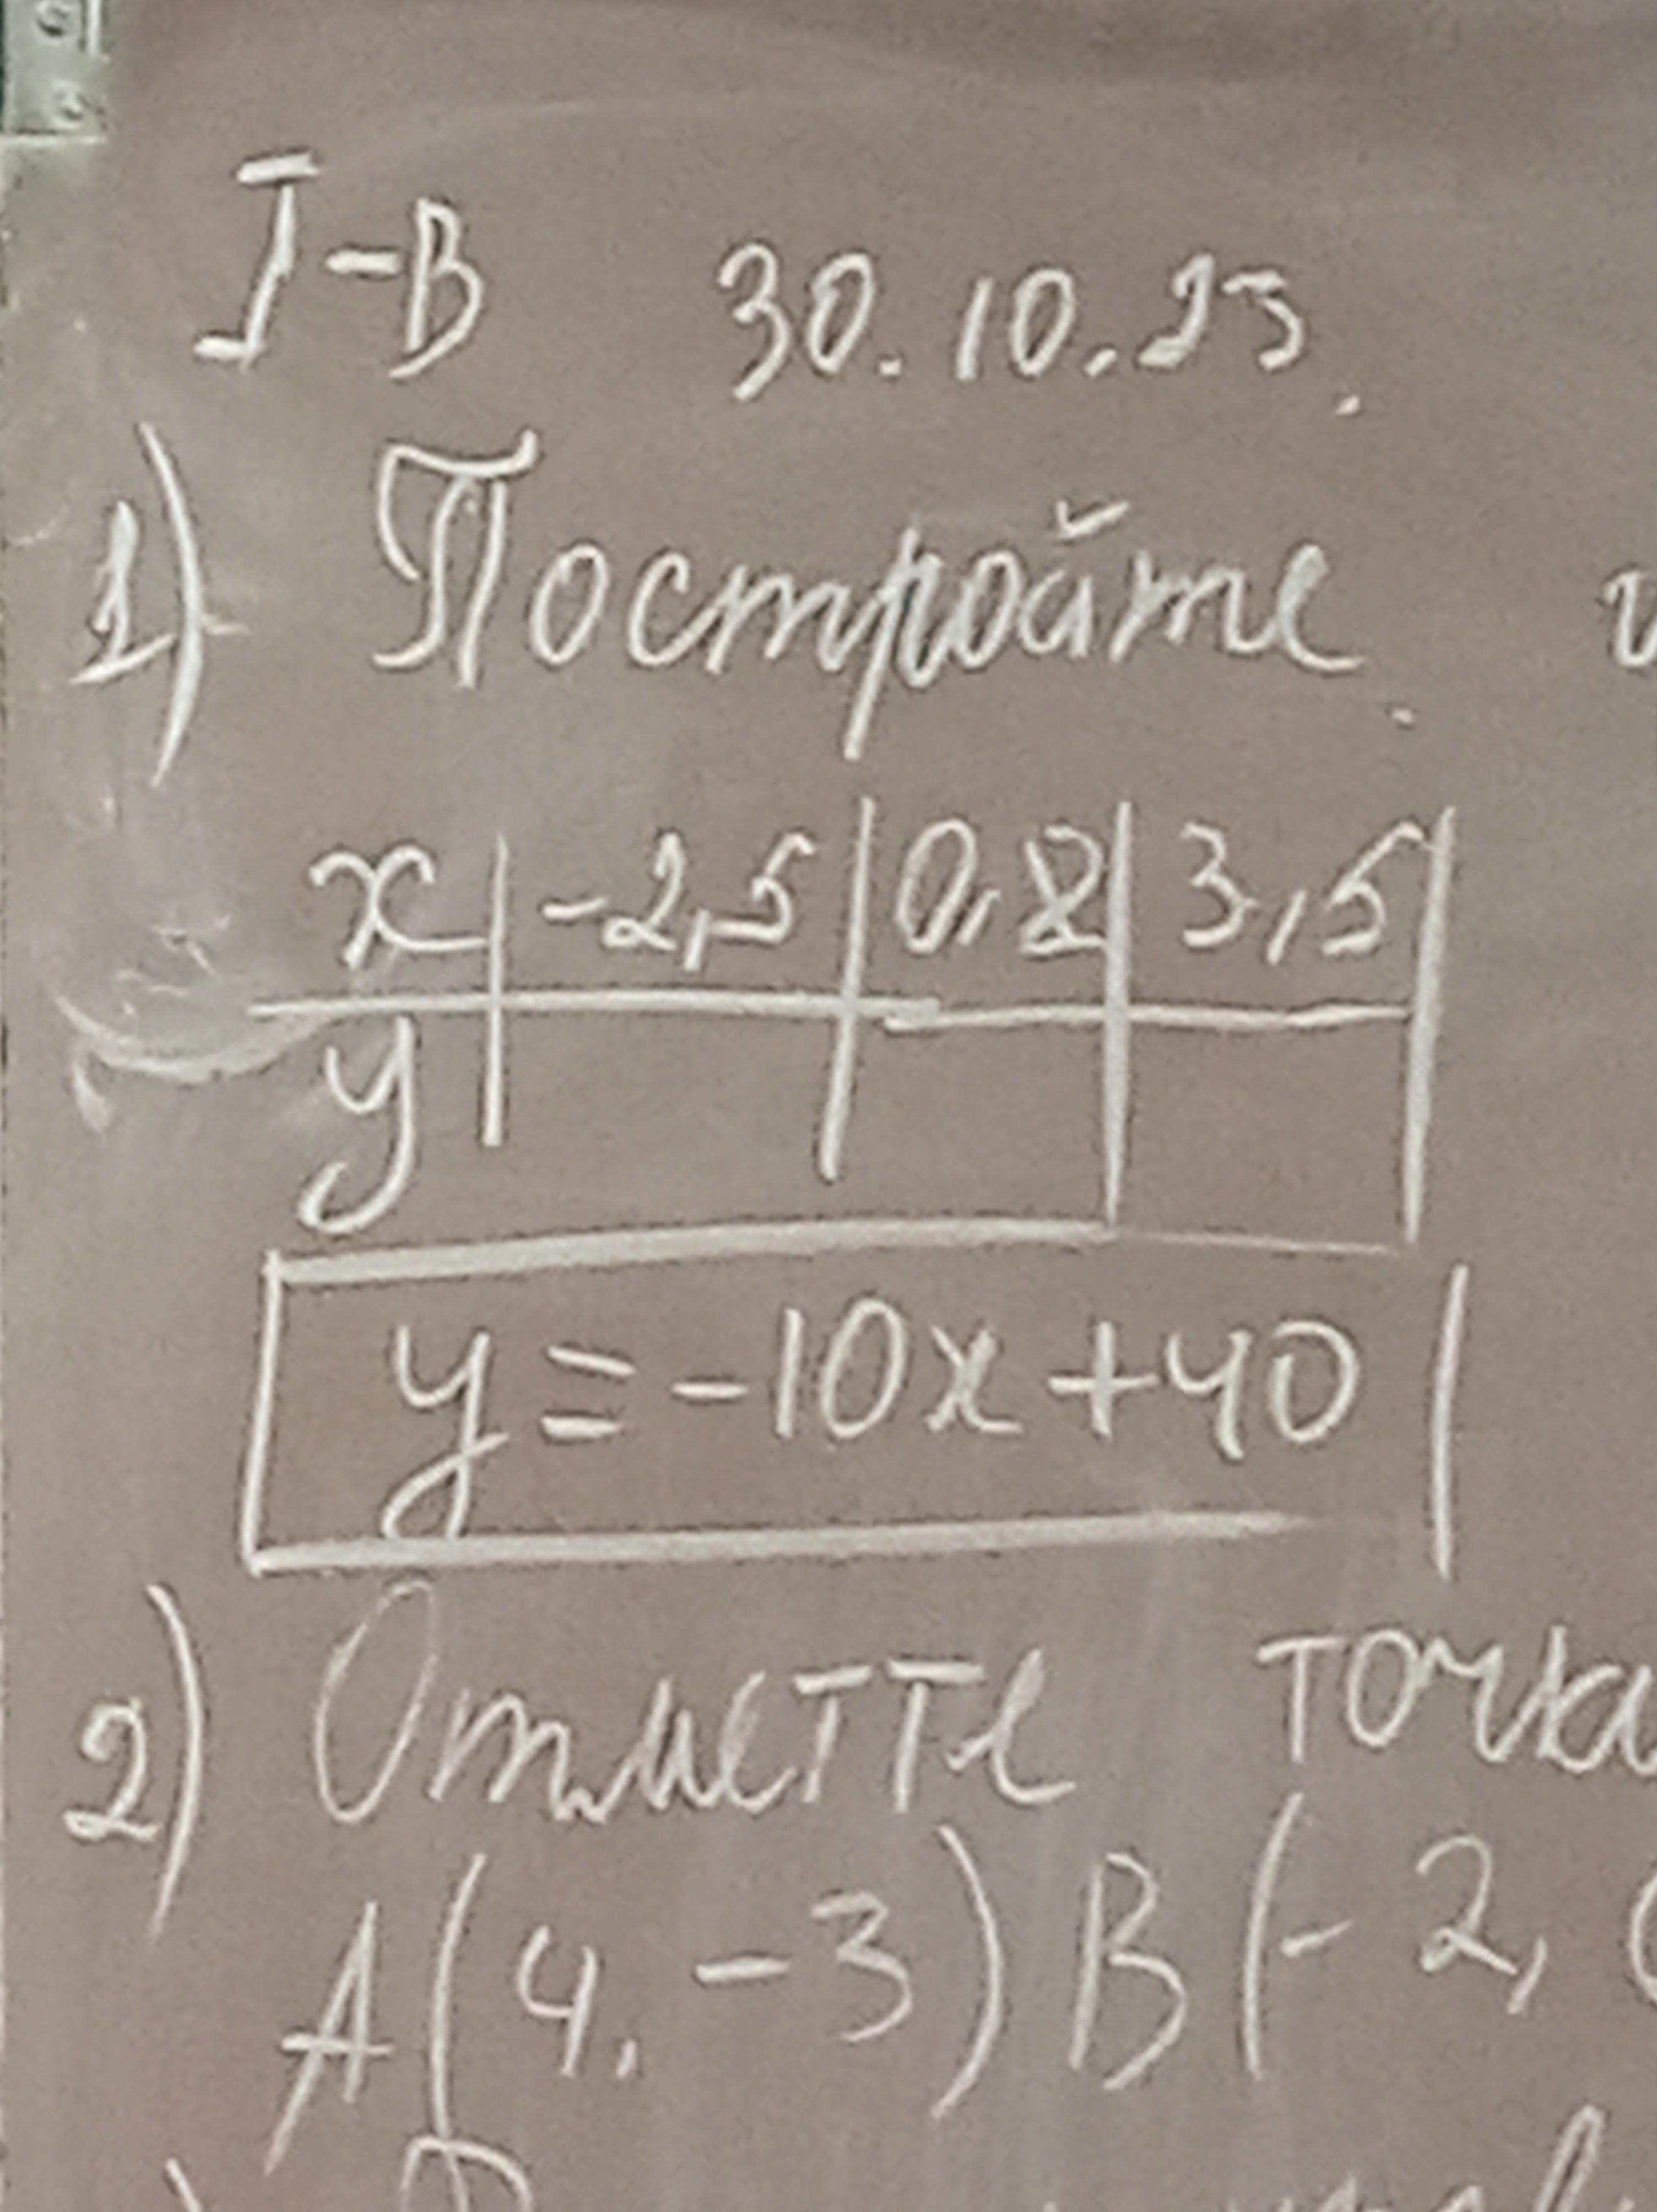 I-В 30.10.23.
1) Постройте
x | -2,5 | 0,8 | 3,5
y
y = -10x + 40
2) Отметте точки
A(4, -3) B(-2,